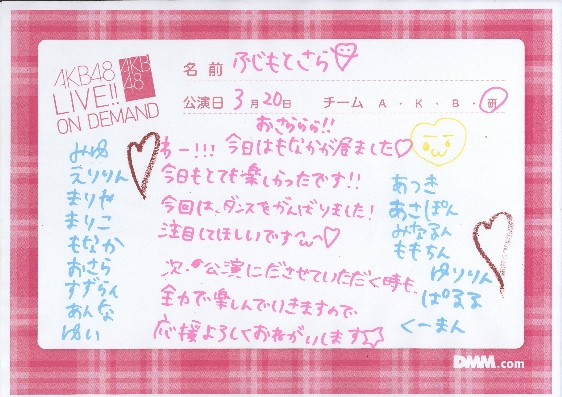 AKB48
LIVE!!
ON DEMAND
AKB
48
名前 ふじもとさら
公演日 3月20日 チーム A・K・B・研
おさららら!!
わー!!! 今日はもなかが居ました♡
今日もとても楽しかったです!!
今回は、ダンスをがんばりました!
注目してほしいです
次の公演にださせていただく時も、
全力で楽しんでいきますので
応援よろしくおねがいします☆
みゆ
えりりん
まりや
まりこ
もなか
おさら
すずらん
あんな
ゆい
あつき
あさぽん
みなるん
ももちん
ゆりりん
ぱるる
くーまん
DMM.com